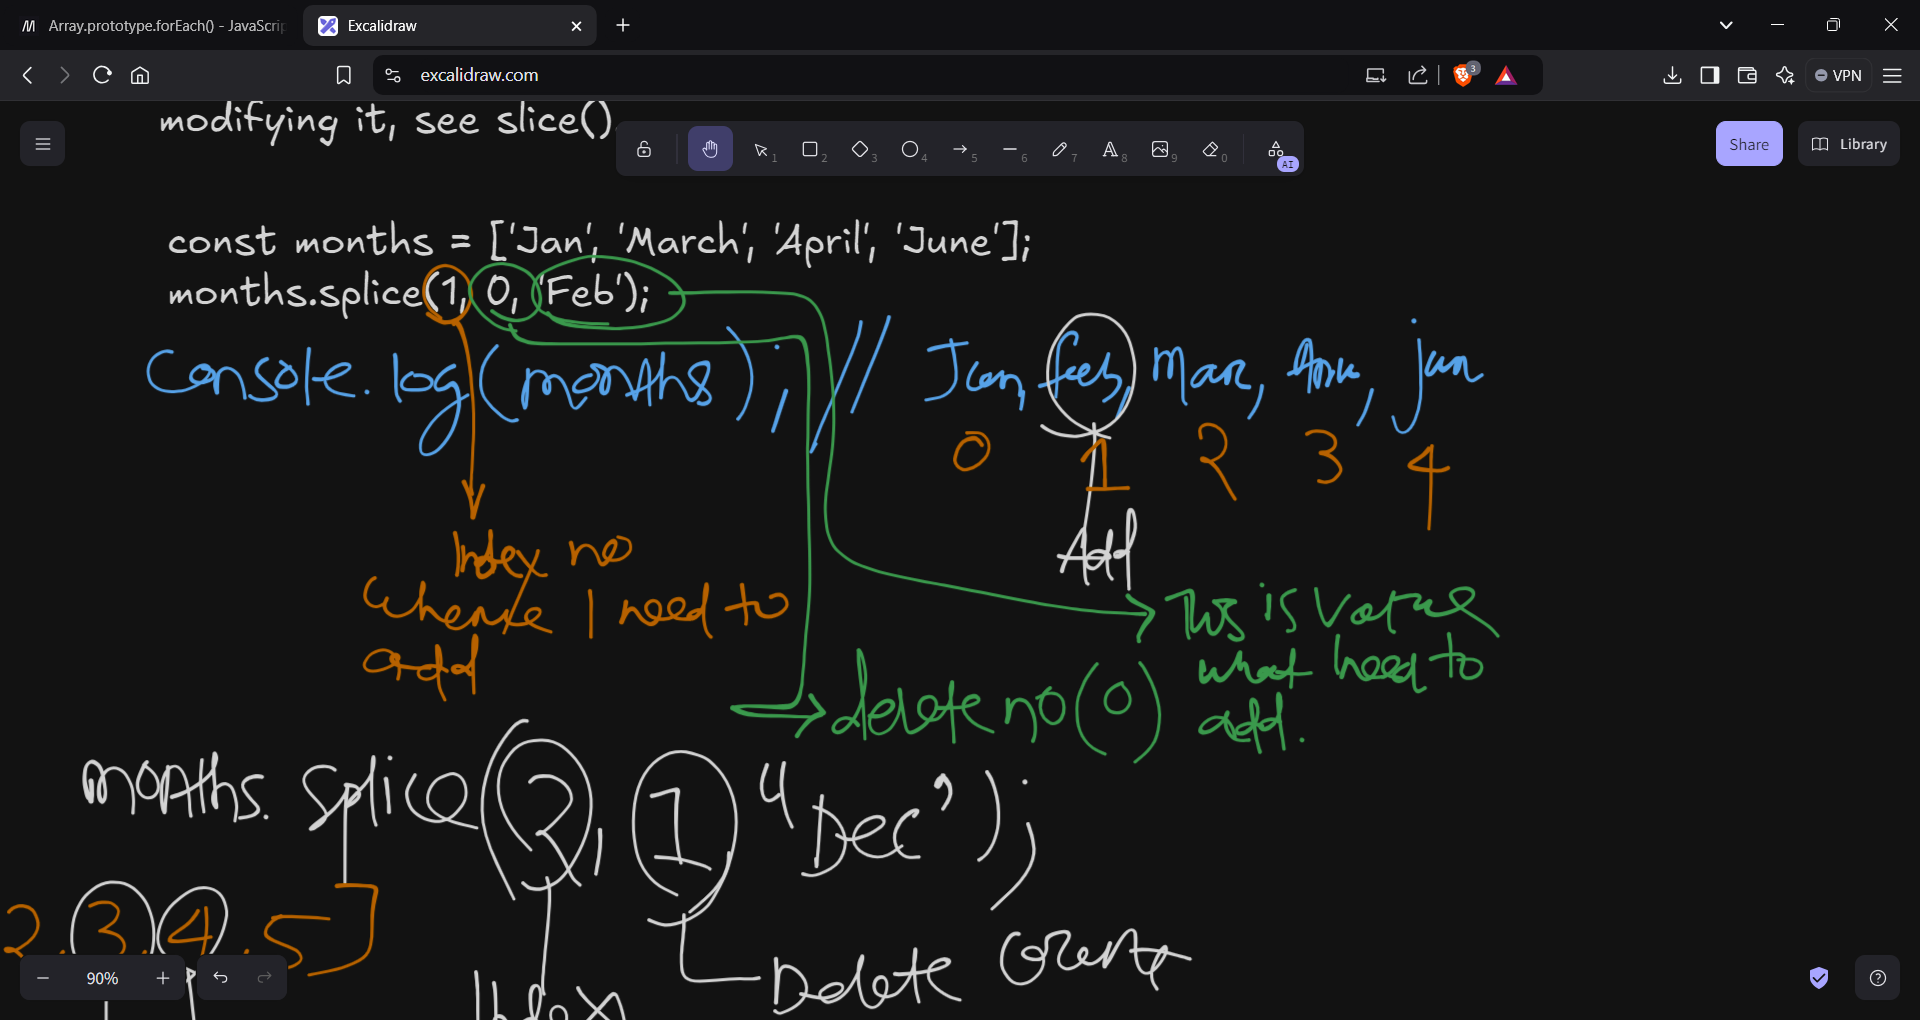 Array.prototype.forEach() - JavaScri
Excalidraw
excalidraw.com
3
VPN
modifying it, see slice()
1 2 3 4 5 6 7 8 9 0 AI
Share
Library
const months = ['Jan', 'March', 'April', 'June'];
months.splice(1, 0, 'Feb');
Console.log(months); // Jan, feb, Mar, jun
0 1 2 3 4
Add
Index no
where I need to
add
This is Value
what need to
add.
delete no (0)
months.splice(2, 1 "Dec');
2.3.4.5]
Delete Count
Index
90%